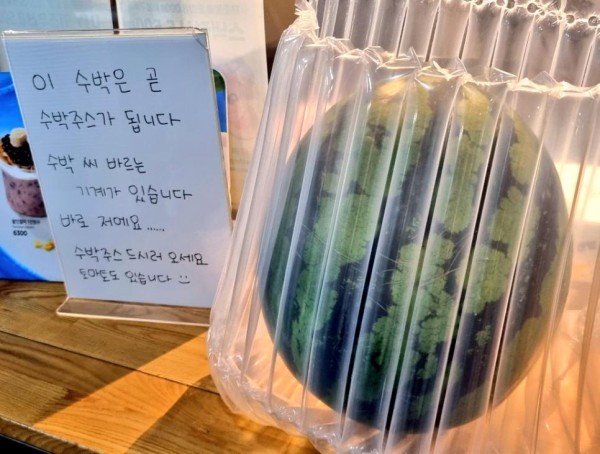 이 수박은 곧
수박주스가 됩니다
수박 씨 바르는
기계가 있습니다
바로 저예요......
수박주스 드시러 오세요
토마토도 있습니다 :)
6300